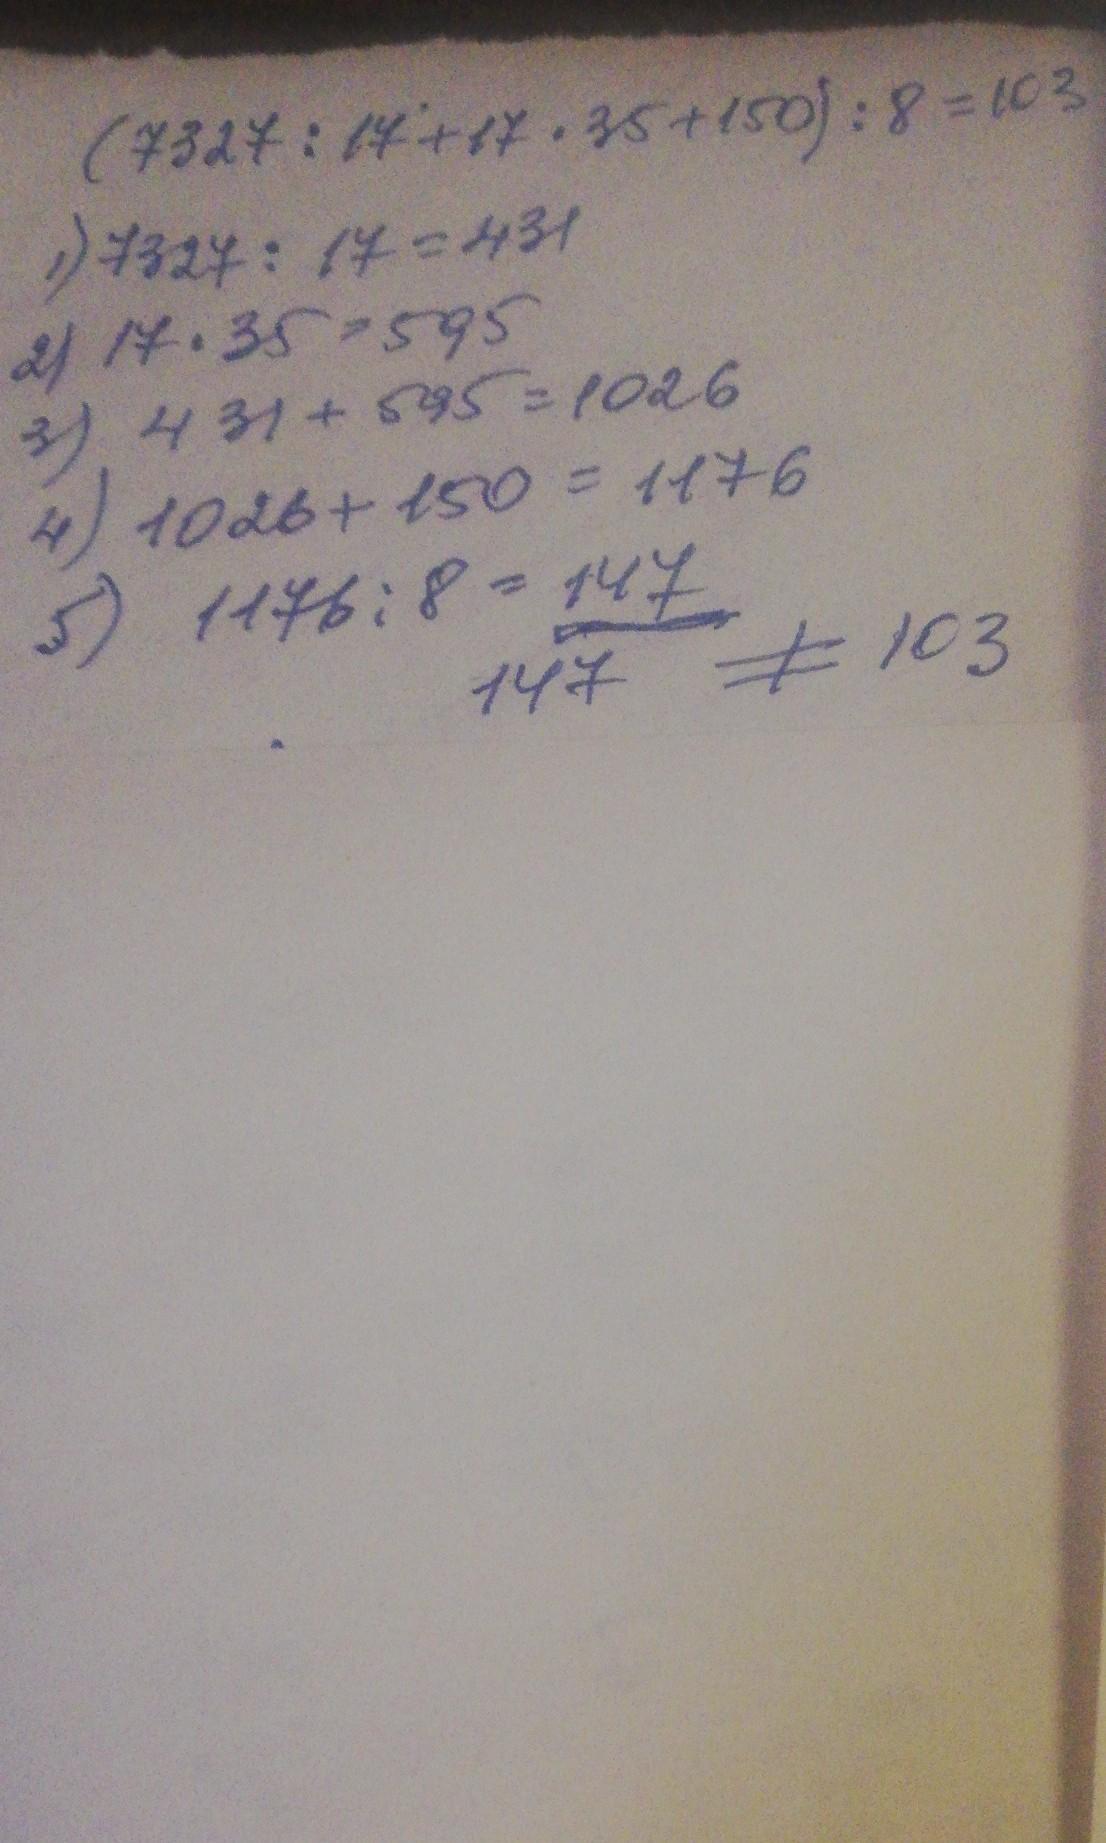 (7327 : 17 + 17 · 35 + 150) : 8 = 103
1) 7327 : 17 = 431
2) 17 · 35 = 595
3) 431 + 595 = 1026
4) 1026 + 150 = 1176
5) 1176 : 8 = 147
147 ≠ 103